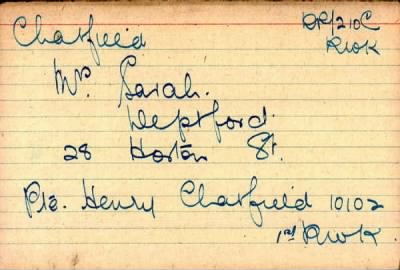 Chatfield DP/210C
RWK
Mrs. Sarah.
Deptford.
28 Horton St.
Pte. Henry Chatfield 10102
1st RWK.